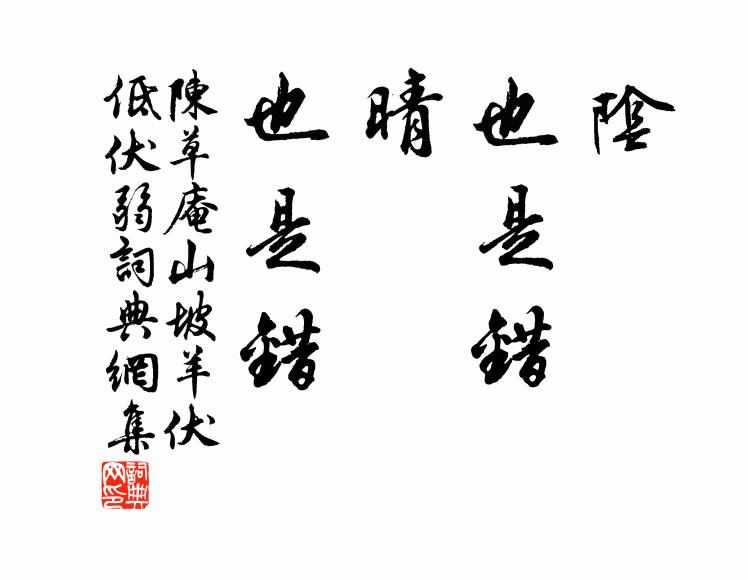 陰
也是錯
晴
也是錯
陳草庵山坡羊伏
低伏弱詞典網集
詞典
网印